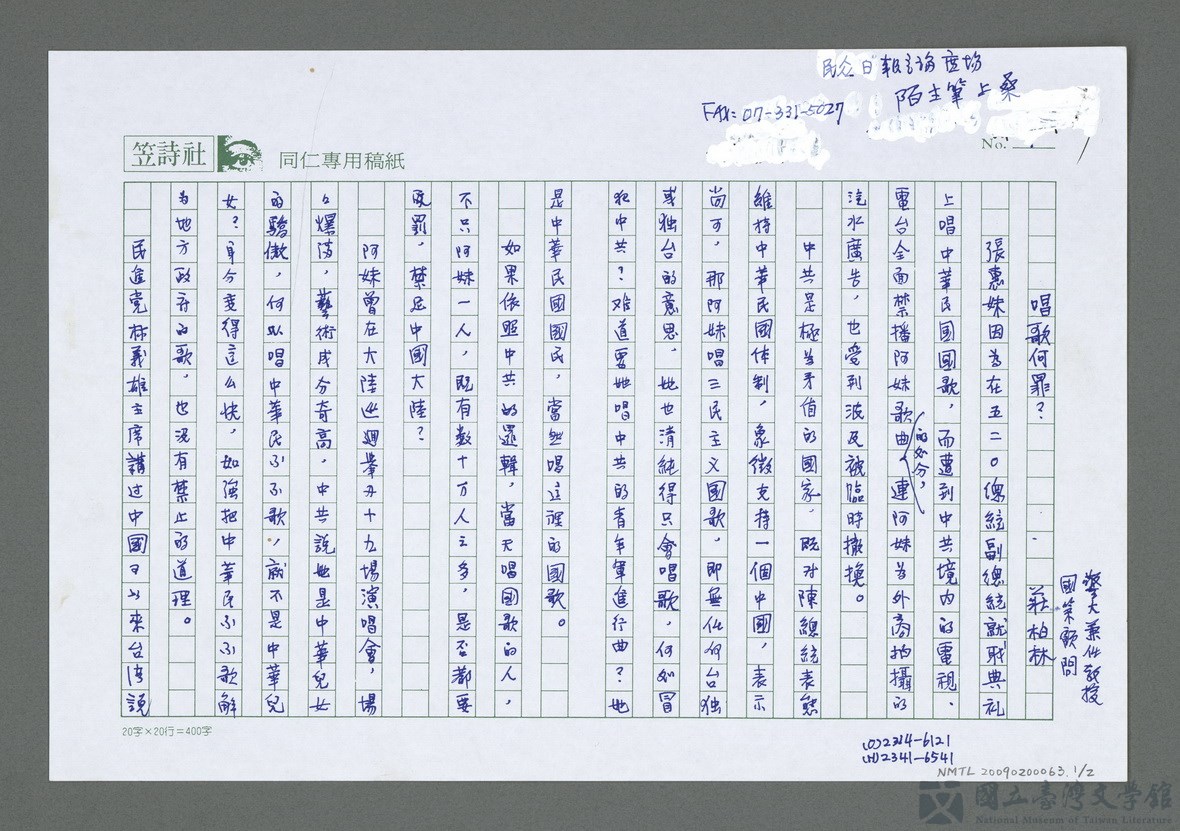 民众日報言論廣場
陌主筆上桑
FAX: 07-331-5027
笠詩社
同仁專用稿紙
No.
警大兼任教授
國策顧問
唱歌何罪?
莊柏林
張惠妹因為在五二〇總統副總統就职典礼
上唱中華民国国歌,而遭到中共境内的電視、
電台全面禁播阿妹歌曲的处分,連阿妹為外商拍攝的
汽水廣告,也受到波及被臨時撤換。
中共是極為矛盾的國家,既对陳總統表態
維持中華民國体制,象徵支持一個中國,表示
尚可,那阿妹唱三民主义國歌,即無任何台独
或独台的意思,她也清純得只會唱歌,何如冒
犯中共?难道要她唱中共的青年軍進行曲?她
是中華民國國民,當然唱這裡的國歌。
如果依照中共的邏輯,當天唱國歌的人,
不只阿妹一人,既有数十万人之多,是否都要
定罪,禁足中國大陸?
阿妹曾在大陸巡迴舉办十九場演唱會,場
々爆滿,藝術成分奇高,中共説她是中華兒女
的驕傲,何以唱中華民国国歌,就不是中華兒
女?身分变得这么快,如強把中華民国国歌解
为地方政府的歌,也没有禁止的道理。
民進党林義雄主席講过中國可以來台湾説
20字×20行=400字
(O)2314-6121
(H)2341-6541
NMTL 20090200063.1/2
國立臺灣文學館
National Museum of Taiwan Literature